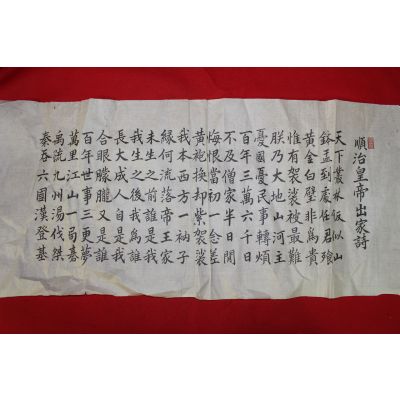 順治皇帝出家詩
天下叢林飯似山
鉢盂到處任君飡
黃金白璧非爲貴
惟有袈裟被最難
朕乃大地山河主
憂國憂民事轉煩
百年三萬六千日
不及僧家半日閒
悔恨當初一念差
黃袍換却紫袈裟
我本西方一衲子
緣何流落帝王家
未生之前誰是我
我生之後我爲誰
長大成人自是我
合眼朦朧又是誰
百年世事三更夢
萬里江山一局碁
禹疏九州湯伐桀
秦吞六國漢登基